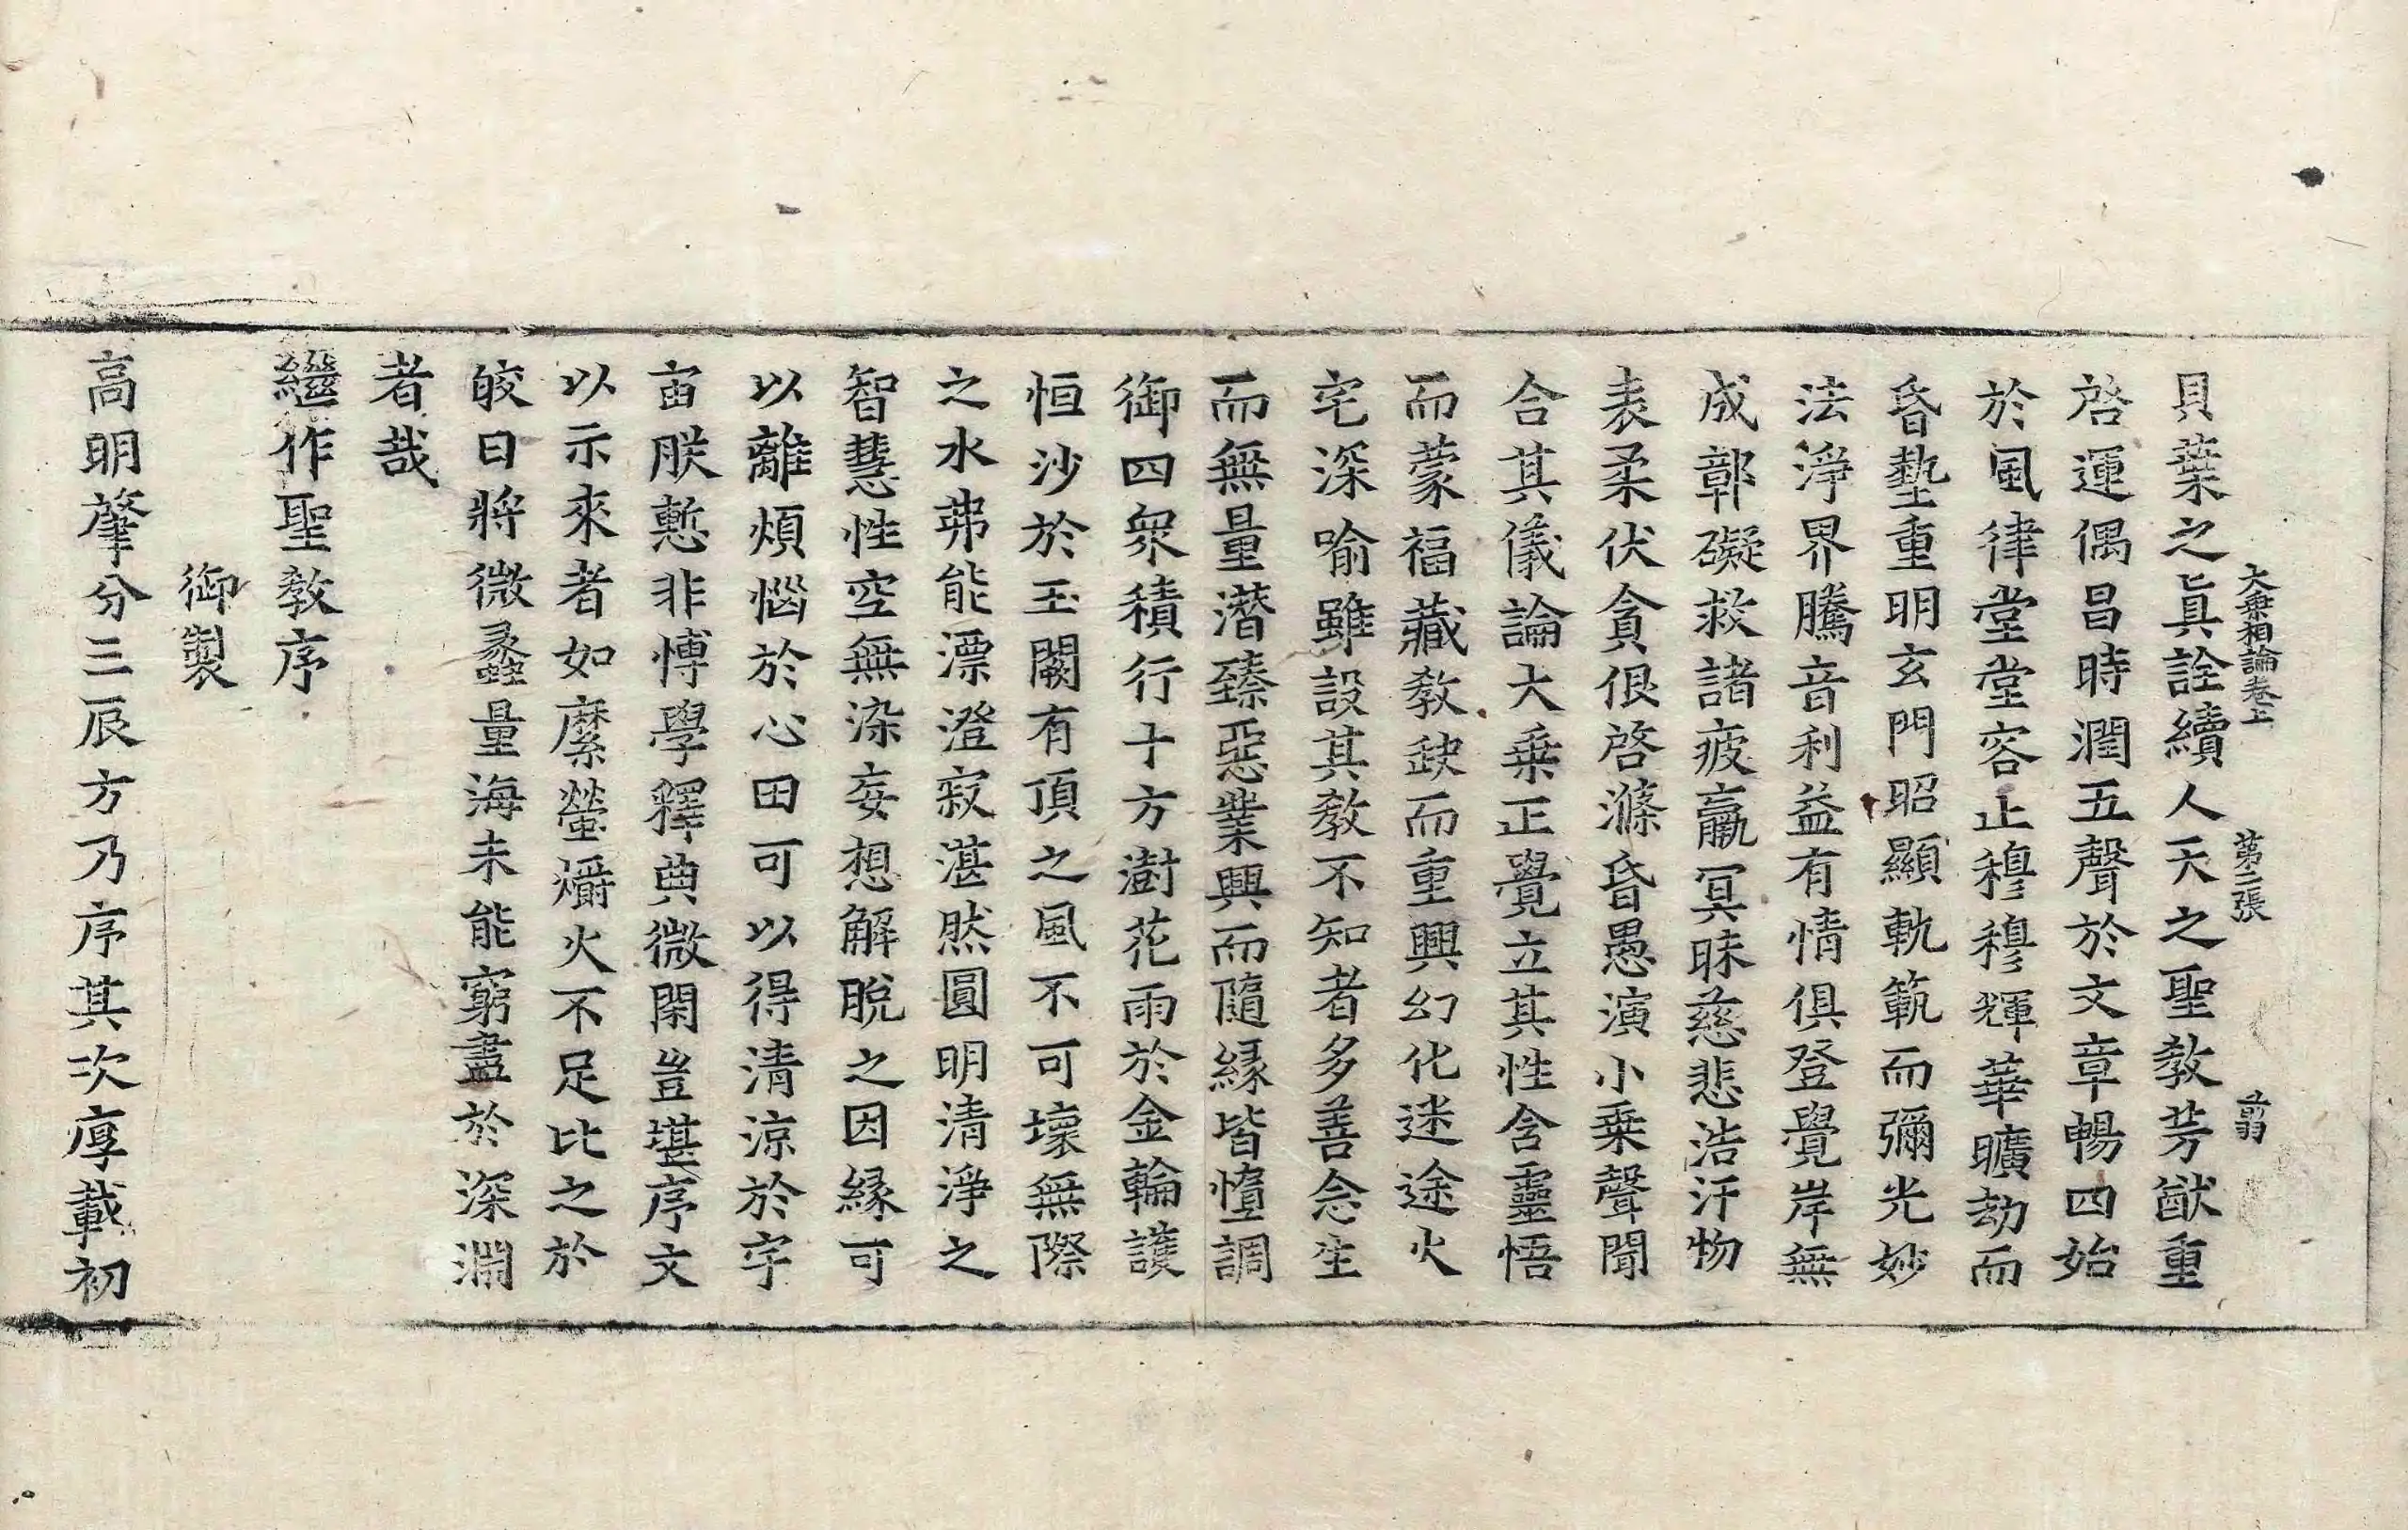 大乗相論卷上 第二張 翦
貝葉之眞詮續人天之聖教芳猷重
啓運偶昌時潤五聲於文章暢四始
於風律堂堂容止穆穆輝華曠劫而
昏墊重明玄門昭顯軌範而彌光妙
法淨界騰音利益有情俱登覺岸無
成鄣礙救諸疲羸冥昧慈悲浩汗物
表柔伏貪佷啓滌昏愚演小乗聲聞
合其儀論大乗正覺立其性含靈悟
而蒙福藏教缺而重興幻化迷途火
宅深喻雖設其教不知者多善念生
而無量潛臻惡業興而隨緣皆墯調
御四衆積行十方澍花雨於金輪護
恒沙於玉闕有頂之風不可壞無際
之水弗能漂澄寂湛然圓明清淨之
智慧性空無染妄想解脫之因緣可
以離煩惱於心田可以得清涼於宇
宙朕慙非博學釋典微閑豈堪序文
以示來者如縻螢爝火不足比之於
皎日將微蠡量海未能窮盡於深淵
者哉
繼作聖教序
御製
高明肇分三辰方乃序其次厚載初